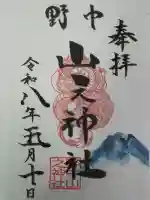 奉拝
中野
山天神社
令和八年五月十日